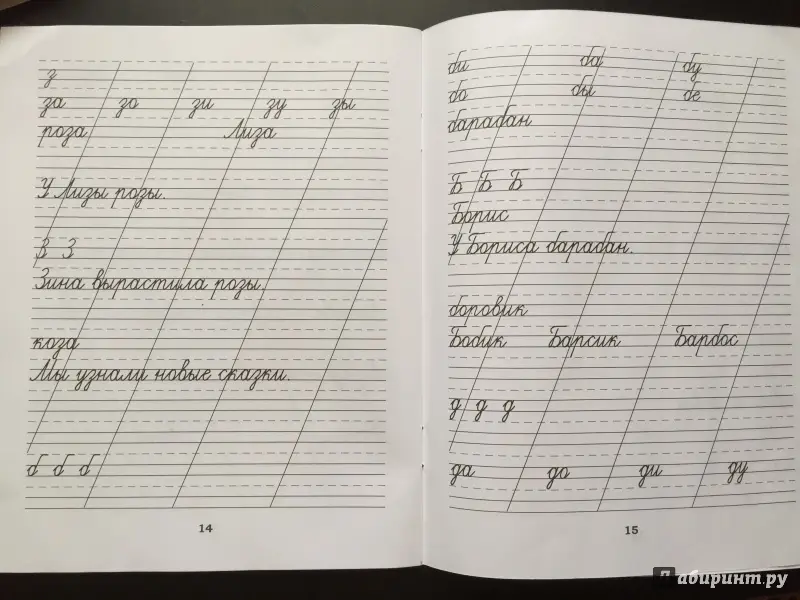 з
за зо зи зу зы
роза Лиза
У Лизы розы.
В З
Зина вырастила розы.
коза
Мы узнали новые сказки.
б б б
14
би ба бу
бо бы бе
барабан
Б Б Б
Борис
У Бориса барабан.
боровик
Бобик Барсик Барбос
д д д
да до ди ду
15
Лабиринт.ру